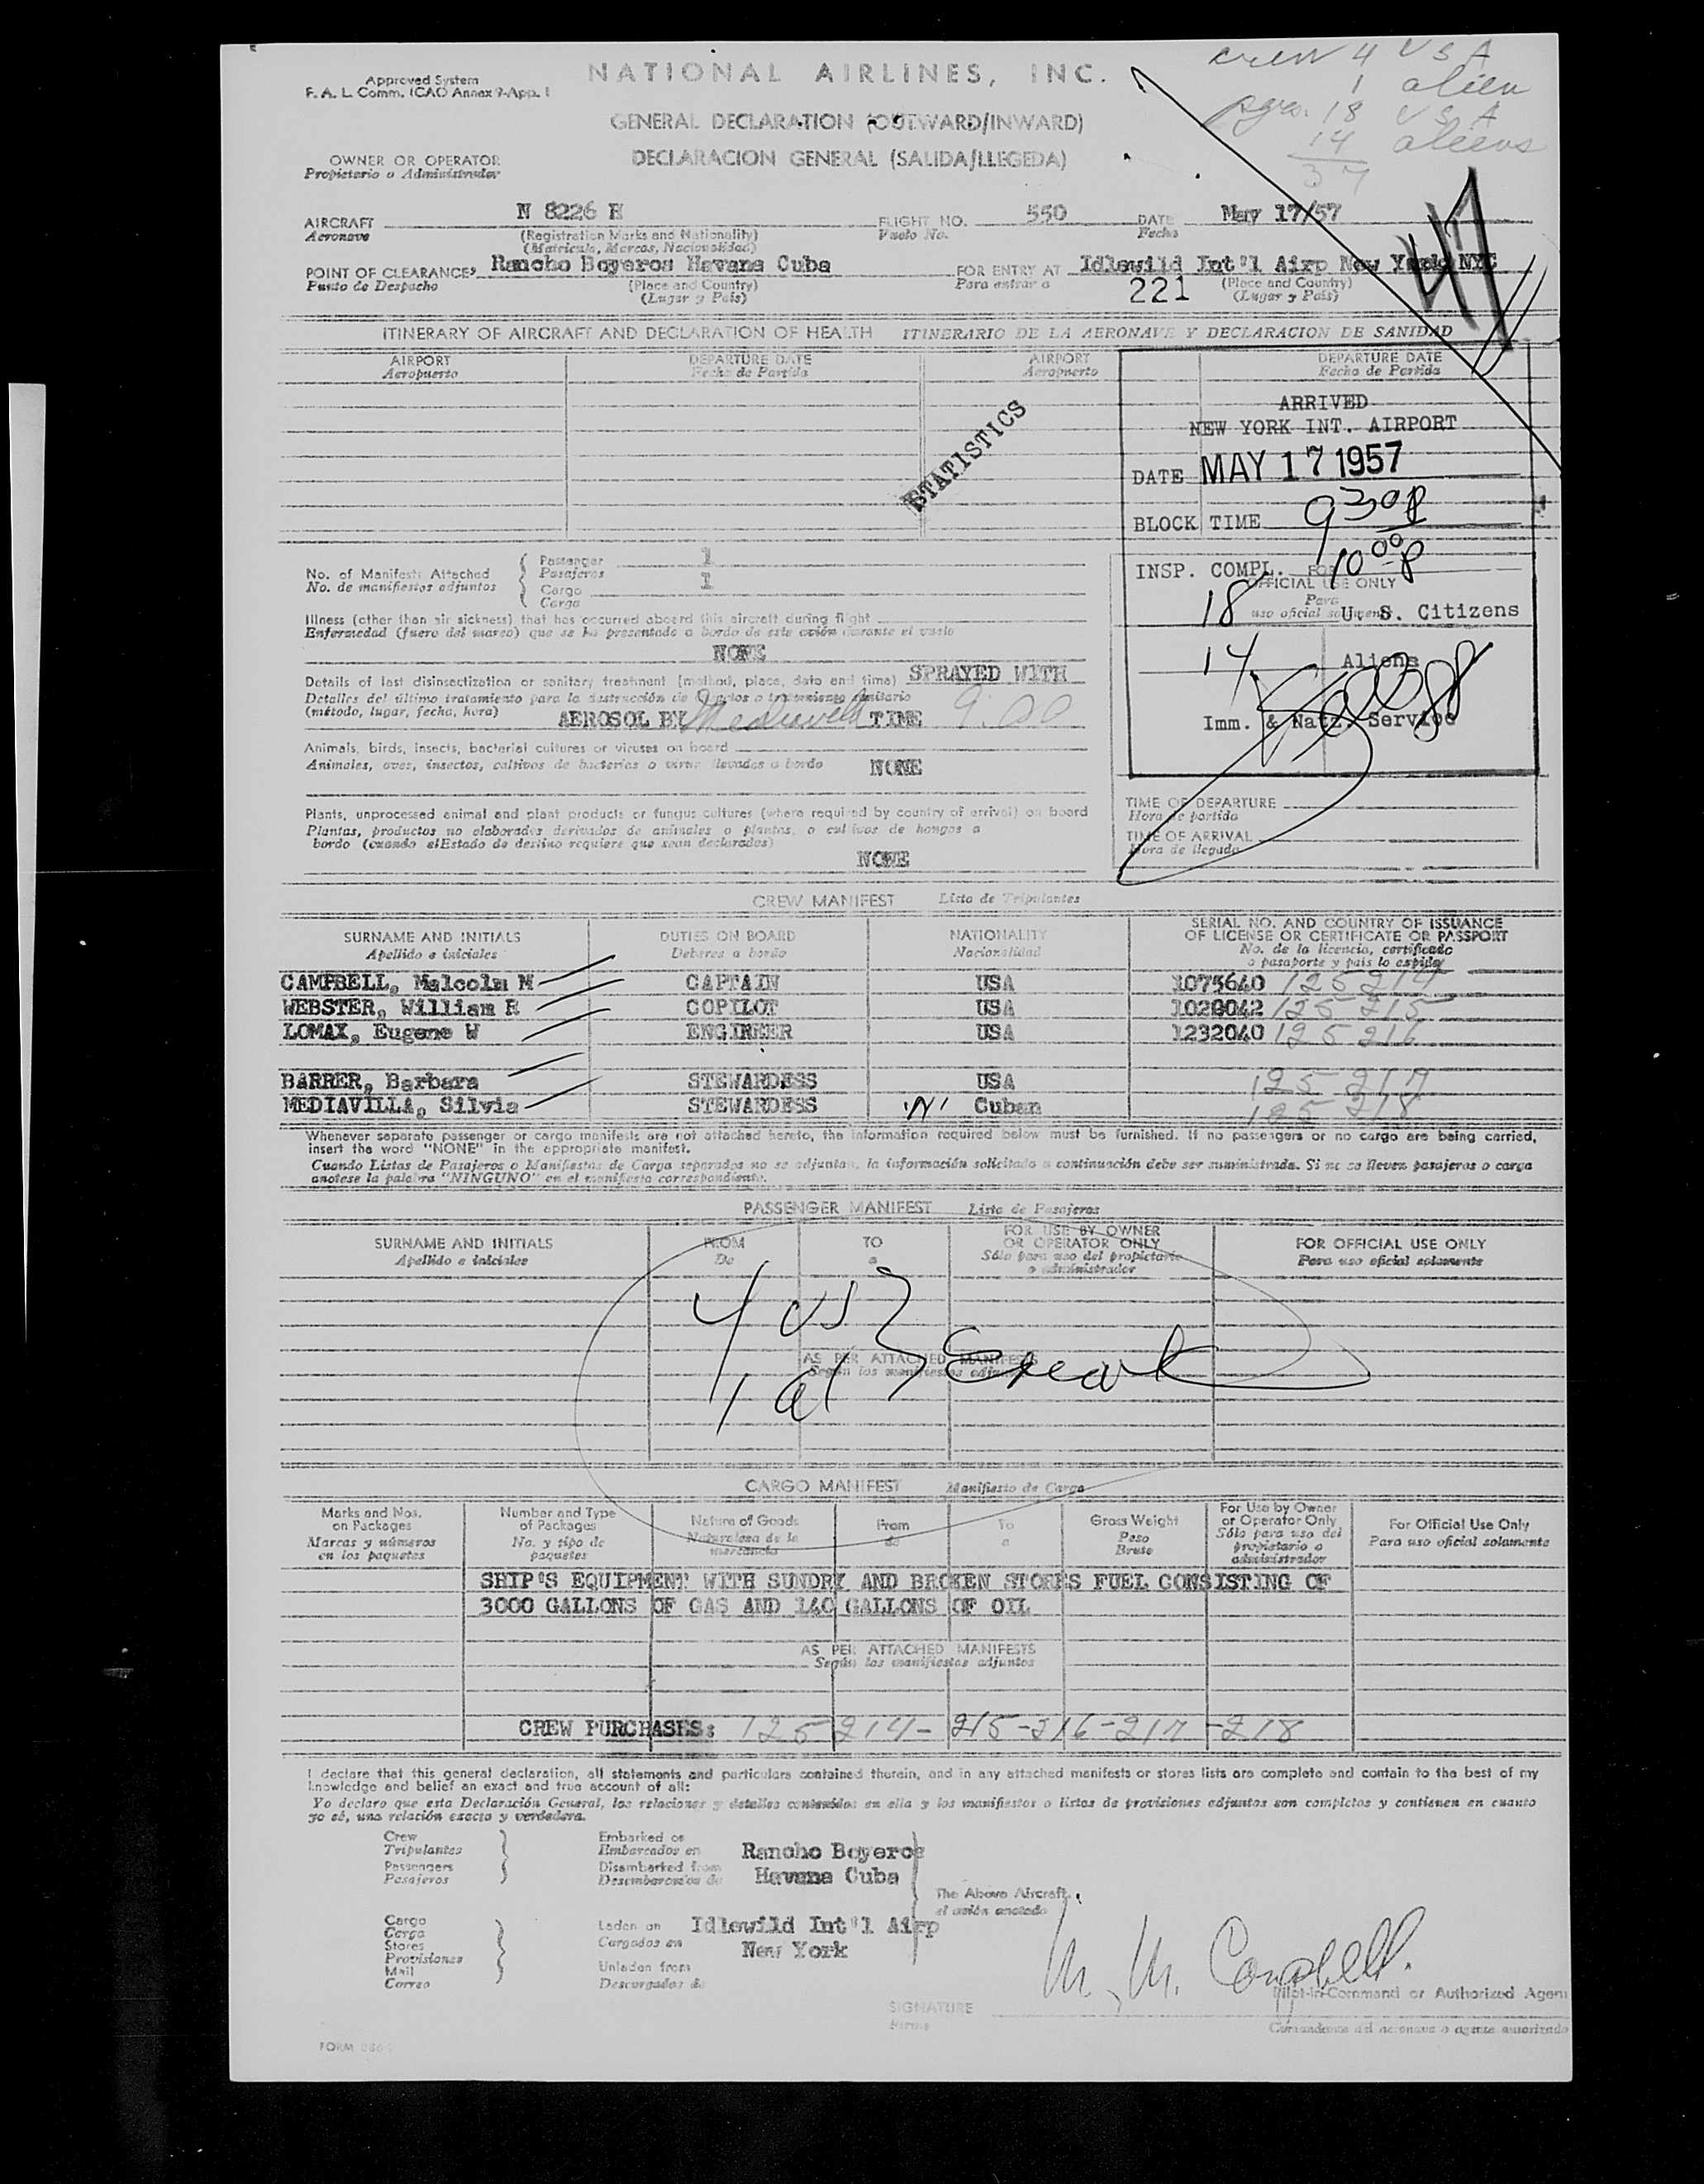 crew 4 USA
1 alien
pgrs. 18 USA
14 aliens
37
Approved System
F. A. L. Comm. ICAO Annex 9-App. 1
NATIONAL AIRLINES, INC.
GENERAL DECLARATION (OUTWARD/INWARD)
DECLARACION GENERAL (SALIDA/LLEGEDA)
OWNER OR OPERATOR
Propietario o Administrador
AIRCRAFT N 8226 H FLIGHT NO. 550 DATE May 17/57
Aeronave (Registration Marks and Nationality) Vuelo No. Fecha
(Matricula, Marcas, Nacionalidad)
POINT OF CLEARANCE, Rancho Boyeros Havana Cuba FOR ENTRY AT Idlewild Int'l Airp New York NYC
Punto de Despacho (Place and Country) Para entrar a 221 (Place and Country)
(Lugar y Pais) (Lugar y Pais)
ITINERARY OF AIRCRAFT AND DECLARATION OF HEALTH ITINERARIO DE LA AERONAVE Y DECLARACION DE SANIDAD
AIRPORT DEPARTURE DATE AIRPORT DEPARTURE DATE
Aeropuerto Fecha de Partida Aeropuerto Fecha de Partida
STATISTICS
ARRIVED
NEW YORK INT. AIRPORT
DATE MAY 17 1957
BLOCK TIME 930p
INSP. COMPL. 10 00 p
FOR OFFICIAL USE ONLY
Para uso oficial solamente
18 U. S. Citizens
14 Aliens
Imm. & Natz. Service
No. of Manifests Attached Passenger 1
No. de manifiestos adjuntos Pasajeros
Cargo 1
Carga
Illness (other than air sickness) that has occurred aboard this aircraft during flight
Enfermedad (fuera del mareo) que se ha presentado a bordo de este avión durante el vuelo
NONE
Details of last disinsectization or sanitary treatment (method, place, date and time) SPRAYED WITH
Detalles del último tratamiento para la destrucción de insectos o tratamiento sanitario
(método, lugar, fecha, hora) AEROSOL BY Mediavilla TIME 9:00
Animals, birds, insects, bacterial cultures or viruses on board
Animales, aves, insectos, cultivos de bacterias o virus llevados a bordo NONE
Plants, unprocessed animal and plant products or fungus cultures (where required by country of arrival) on board
Plantas, productos no elaborados derivados de animales o plantas, o cultivos de hongos a
bordo (cuando elEstado de destino requiere que sean declarados)
NONE
TIME OF DEPARTURE
Hora de partida
TIME OF ARRIVAL
Hora de llegada
CREW MANIFEST Lista de Tripulantes
SURNAME AND INITIALS DUTIES ON BOARD NATIONALITY SERIAL NO. AND COUNTRY OF ISSUANCE OF LICENSE OR CERTIFICATE OR PASSPORT
Apellido e iniciales Deberes a bordo Nacionalidad No. de la licencia, certificado o pasaporte y pais lo expide
CAMPBELL, Malcolm M CAPTAIN USA 1075640 125214
WEBSTER, William R COPILOT USA 1028042 125 215
LOMAX, Eugene W ENGINEER USA 1232040 125 216
BARRER, Barbara STEWARDESS USA 125 217
MEDIAVILLA, Silvia STEWARDESS Cuban 125 218
Whenever separate passenger or cargo manifests are not attached hereto, the information required below must be furnished. If no passengers or no cargo are being carried,
insert the word "NONE" in the appropriate manifest.
Cuando Listas de Pasajeros o Manifiestos de Carga separados no se adjuntan, la información solicitada a continuación debe ser suministrada. Si no se lleven pasajeros o carga
anotese la palabra "NINGUNO" en el manifiesto correspondiente.
PASSENGER MANIFEST Lista de Pasajeros
SURNAME AND INITIALS FROM TO FOR USE BY OWNER OR OPERATOR ONLY FOR OFFICIAL USE ONLY
Apellido e iniciales De a Sólo para uso del propietario o administrador Para uso oficial solamente
4 US
1 al
AS PER ATTACHED MANIFESTS
Según los manifiestos adjuntos
CARGO MANIFEST Manifiesto de Carga
Marks and Nos. on Packages Number and Type of Packages Nature of Goods From To Gross Weight For Use by Owner or Operator Only For Official Use Only
Marcas y números en los paquetes No. y tipo de paquetes Naturaleza de la mercancia de a Peso Bruto Sólo para uso del propietario o administrador Para uso oficial solamente
SHIP'S EQUIPMENT WITH SUNDRY AND BROKEN STORES FUEL CONSISTING OF
3000 GALLONS OF GAS AND 140 GALLONS OF OIL
AS PER ATTACHED MANIFESTS
Según los manifiestos adjuntos
CREW PURCHASES: 125214-215-216-217-218
I declare that this general declaration, all statements and particulars contained therein, and in any attached manifests or stores lists are complete and contain to the best of my
knowledge and belief an exact and true account of all:
Yo declaro que esta Declaración General, las relaciones y detalles contenidos en ella y los manifiestos o listas de provisiones adjuntos son completos y contienen en cuanto
yo sé, una relación exacta y verdadera.
Crew Embarked on
Tripulantes Embarcados en Rancho Boyeros
Passengers Disembarked from
Pasajeros Desembarcados de Havana Cuba
The Above Aircraft.
el avión anotado
Cargo Laden on Idlewild Int'l Airp
Carga Cargados en New York
Stores
Provisiones Unladen from
Mail Descargados de
Correo
M. M. Campbell.
Pilot-in-Command or Authorized Agent
SIGNATURE
Firma Comandante del aeronave o agente autorizado
FORM